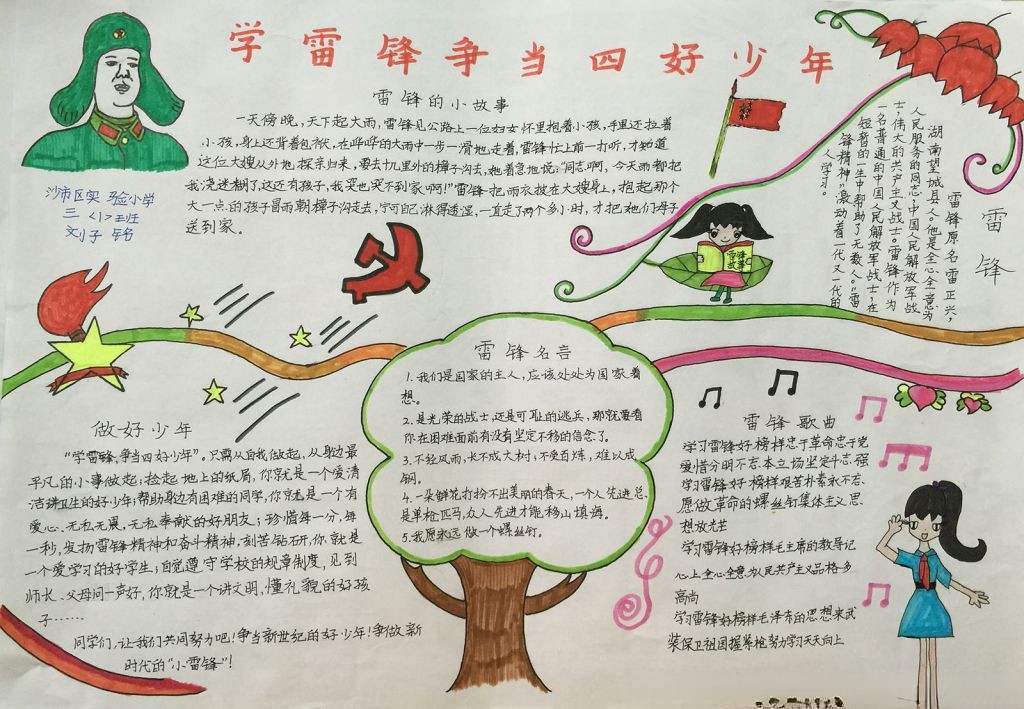 学雷锋争当四好少年
雷锋的小故事
一天傍晚,天下起大雨,雷锋见公路上一位妇女怀里抱着小孩,手里还拉着
小孩,身上还背着包袱,在哗哗的大雨中一步一滑地走着,雷锋忙上前一打听,才知道
这位大嫂从外地探亲归来,要去十几里外的樟子沟去,她着急地说:“同志啊,今天雨都把
我浇迷糊了,这还有孩子,我哭也哭不到家啊!”雷锋把雨衣披在大嫂身上,抱起那个
大一点的孩子冒雨朝樟子沟走去,宁可自己淋得透湿,一直走了两个多小时,才把她们母子
送到家。
沙市区实验小学
三〈1〉班
刘子
雷锋
雷锋原名雷正兴,
湖南望城县人。他是全心全意为
人民服务的同志,中国人民解放军战
士,伟大的共产主义战士。雷锋作为
一名普通的中国人民解放军战士,在
短暂的一生中帮助了无数人。“雷
锋精神”激励着一代又一代的
人学习。
雷锋
故事
雷锋名言
1.我们是国家的主人,应该处处为国家着
想。
2.是光荣的战士,还是可耻的逃兵,那就要看
你在困难面前有没有坚定不移的信念了。
3.不经风雨,长不成大树,不受百炼,难以成
钢。
4.一朵鲜花打扮不出美丽的春天,一个人先进总
是单枪匹马,众人先进才能移山填海。
5.我愿永远做一个螺丝钉。
做好少年
“学雷锋,争当四好少年”。只需从自我做起,从身边最
平凡的小事做起;捡起地上的纸屑,你就是一个爱清
洁讲卫生的好少年;帮助身边有困难的同学,你就是一个有
爱心、无私无畏、无私奉献的好朋友;珍惜每一分,每
一秒,发扬雷锋精神和奋斗精神,刻苦钻研,你就是
一个爱学习的好学生;自觉遵守学校的规章制度,见到
师长、父母问一声好,你就是一个讲文明,懂礼貌的好孩
子……
同学们,让我们共同努力吧!争当新世纪的好少年!争做新
时代的“小雷锋”!
雷锋歌曲
学习雷锋好榜样忠于革命忠于党
爱憎分明不忘本立场坚定斗志强
学习雷锋好榜样艰苦朴素永不忘
愿做革命的螺丝钉集体主义思
想放光芒
学习雷锋好榜样毛主席的教导记
心上全心全意为人民共产主义品格多
高尚
学习雷锋好榜样毛泽东的思想来武
装保卫祖国握紧枪努力学习天天向上